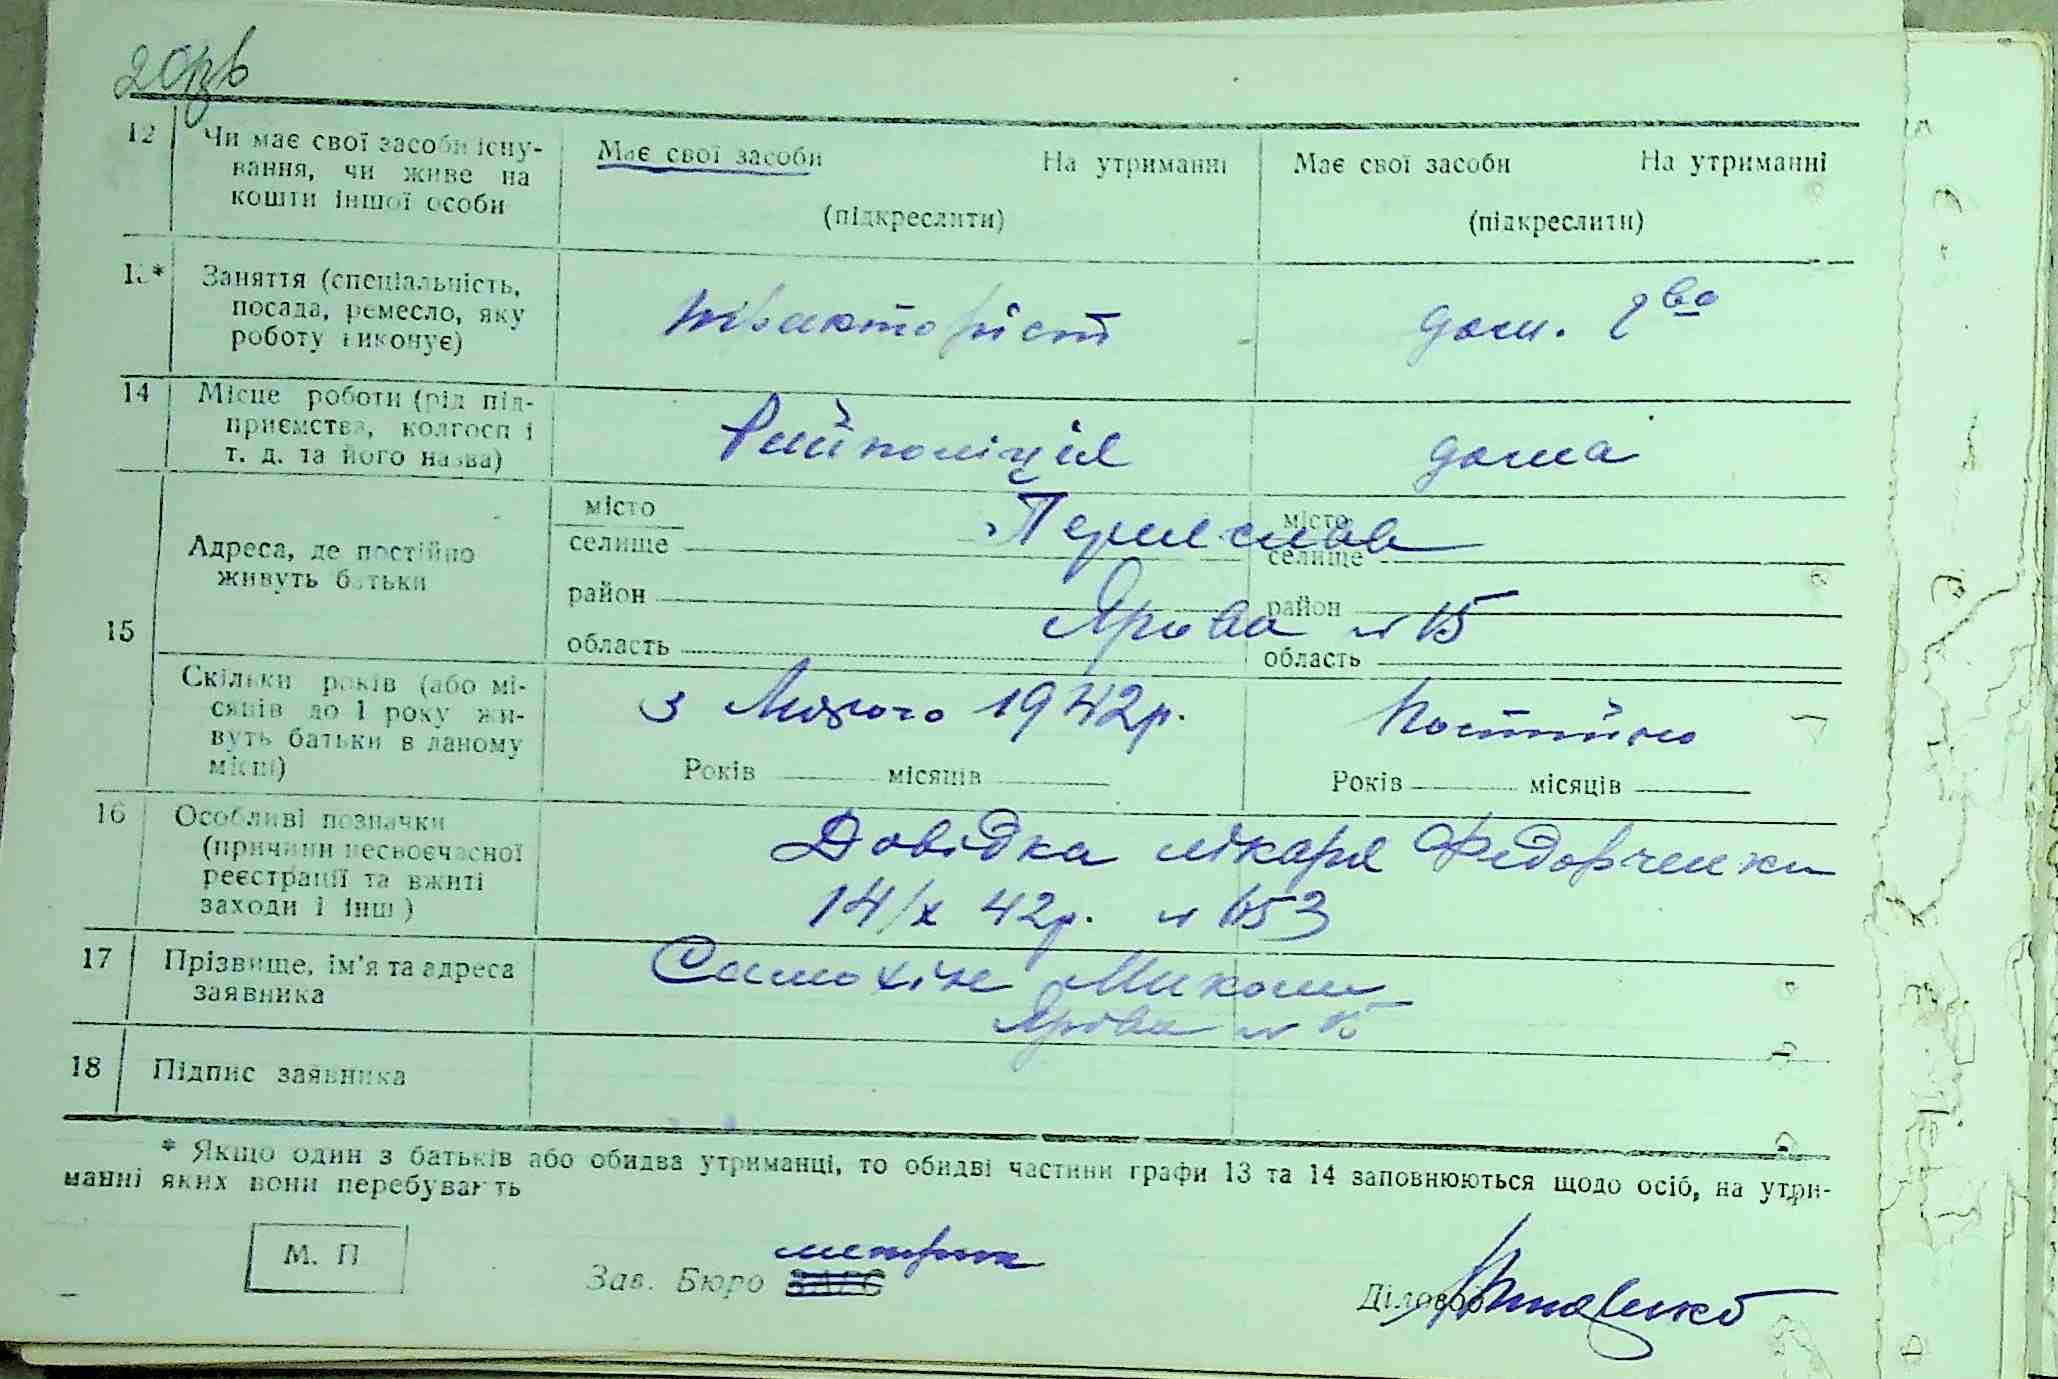 20зв
12 Чи має свої засоби існу- Має свої засоби На утриманні Має свої засоби На утриманні
вання, чи живе на
кошти іншої особи (підкреслити) (підкреслити)
13* Заняття (спеціальність,
посада, ремесло, яку тракторіст дом. г-во
роботу виконує)
14 Місце роботи (рід під-
приємства, колгосп і Райполіція дома
т. д. та його назва)
15 Адреса, де постійно
живуть батьки
місто місто
селище Переяслав селище
район район
Ярова № 15
область область
Скільки років (або мі-
сяців до 1 року жи- З Лютого 1942р. Постійно
вуть батьки в даному
місці) Років місяців Років місяців
16 Особливі позначки Довідка лікаря Федорченка
(причини несвоєчасної
реєстрації та вжиті 14/X 42р. № 153
заходи і інш)
17 Прізвище, ім'я та адреса Самохін Микола
заявника Ярова № 15
18 Підпис заявника
* Якщо один з батьків або обидва утриманці, то обидві частини графи 13 та 14 заповнюються щодо осіб, на утри-
манні яких вони перебувають
М. П. метрик
Зав. Бюро ЗАГС Діловод